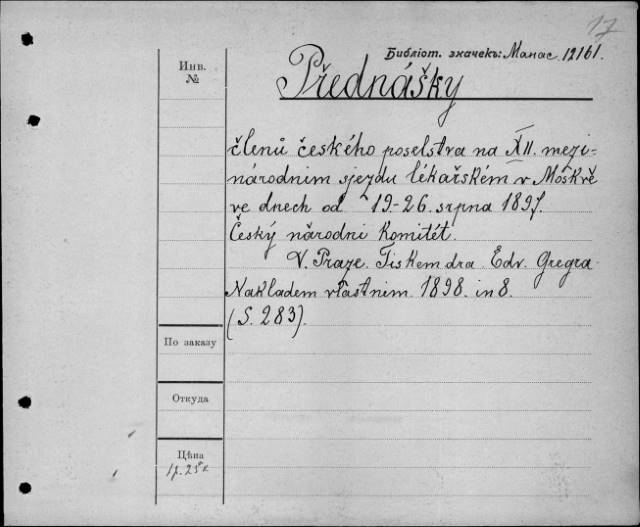 17
Библіот. значекъ: Манас 12161.
Инв.
№
Přednášky
členů českého poselstva na XII. mezi-
národnim sjezdu lékařském v Moskvě
ve dnech od 19-26. srpna 1897.
Český národni Komitét.
V. Praze. Tiskem dra Edv. Gregra
Nakladem vlastnim. 1898. in 8.
(S. 283).
По заказу
Откуда
Цѣна